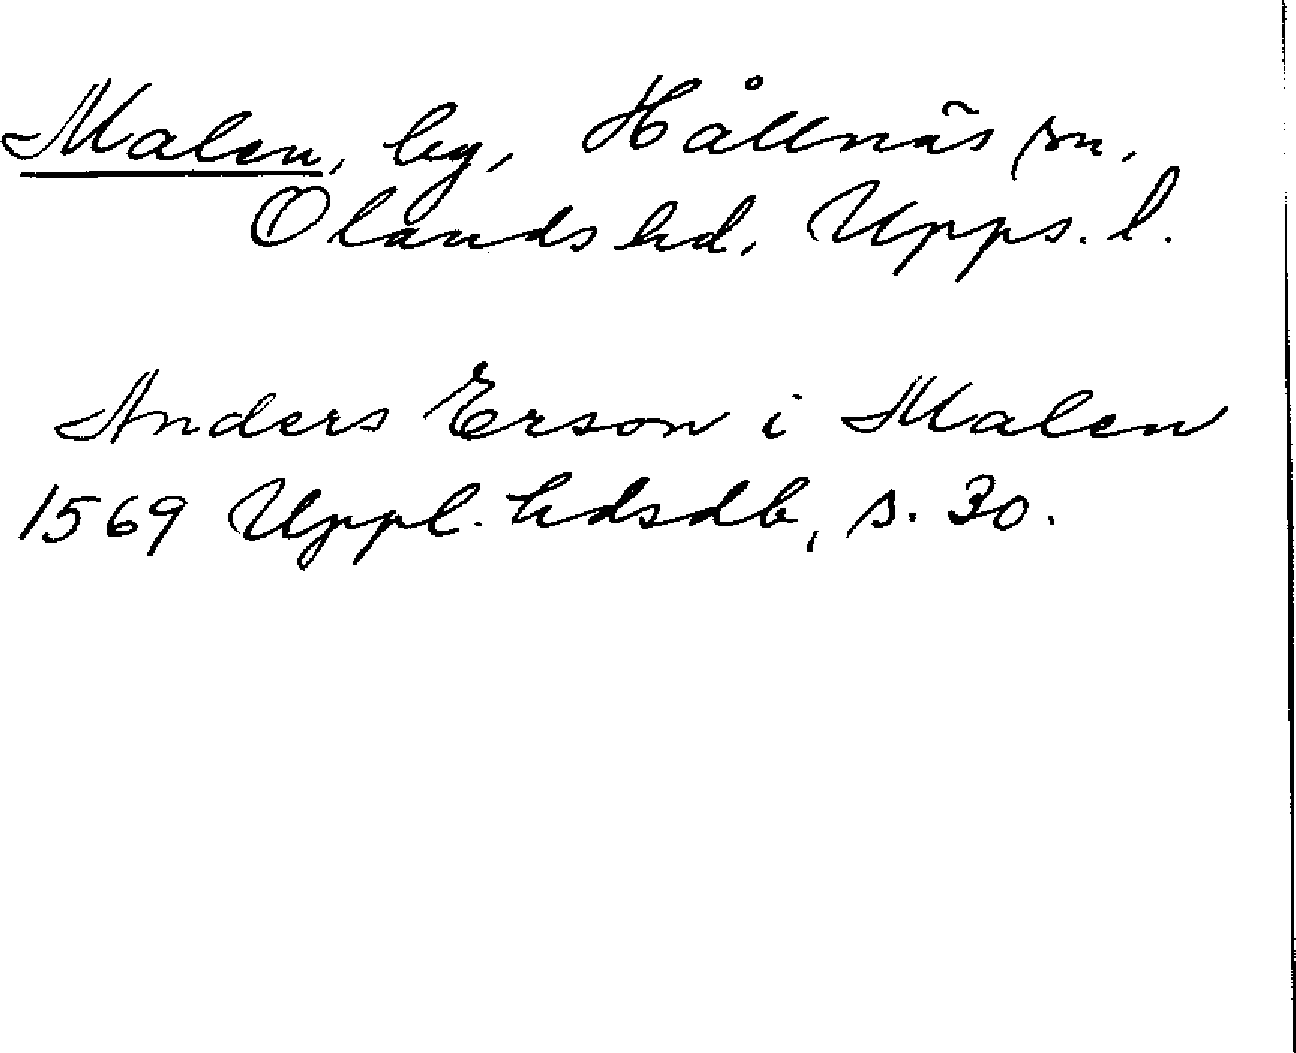 Malen, by, Hållnäs sn,
Olands hd, Upps. l.
Anders Erson i Malen
1569 Uppl. hdsdb, s. 30.